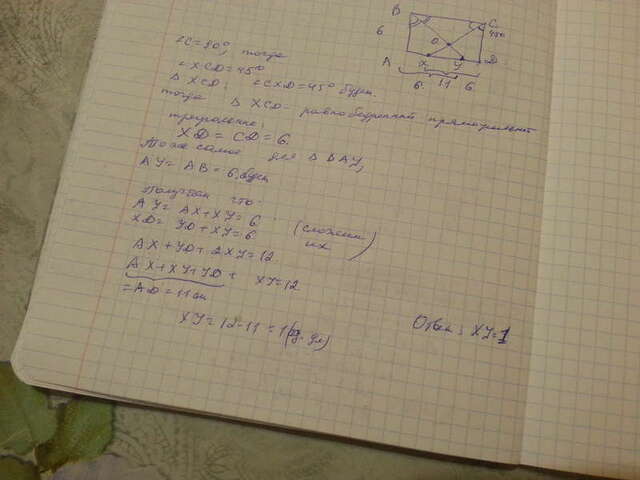 B
C
6
45°
O
A
X
Y
D
6
11
6
∠C=90°, тогда
∠XCD=45°
Δ XCD; ∠CXD=45° будет.
тогда Δ XCD- равнобедренный прямоуголный
треуголник;
XD = CD = 6.
Тоже самое для Δ BAY,
AY= AB=6.будет
Получаем что.
AY= AX+XY=6
XD= YD+XY=6
(сложим их)
AX+YD+2XY=12
AX+XY+YD + XY=12
=AD=11см
XY=12-11=1(ед. дл)
Ответ: XY=1